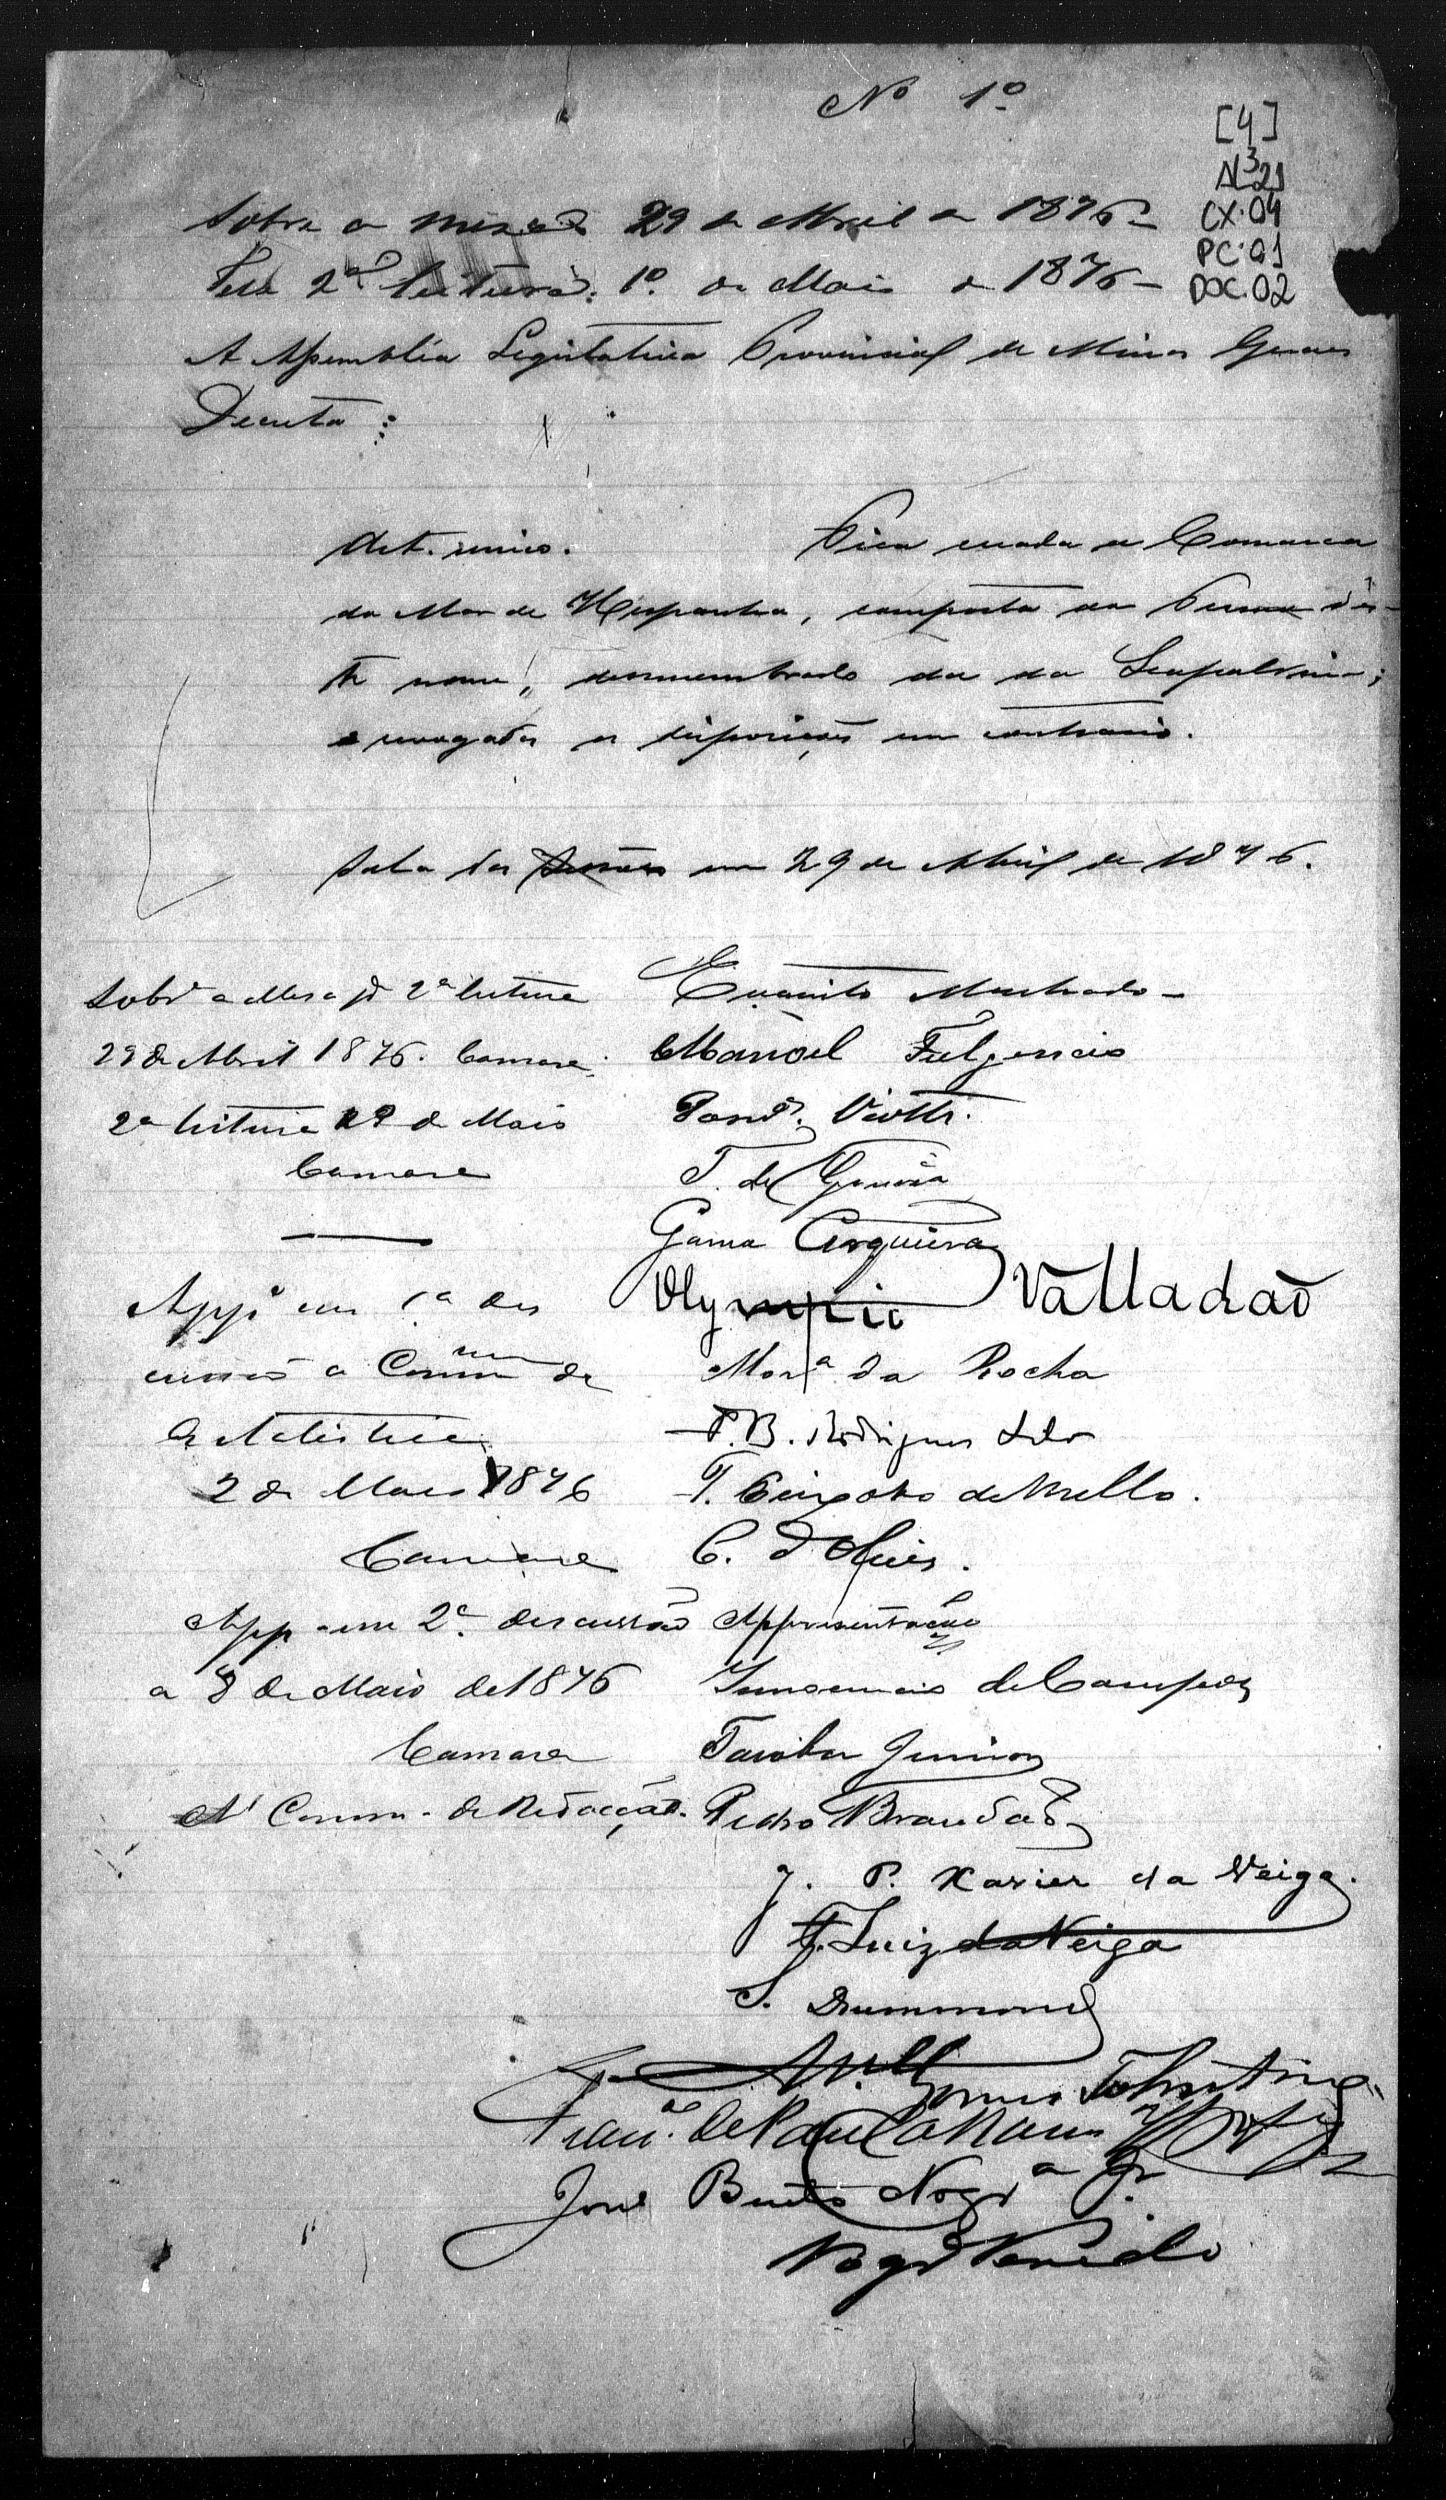 Nº 1º
[4]
AL³21
CX.04
PC.01
DOC.02
Sobre a mesa 29 de Abril de 1876 -
Teve 2ª leitura 1º de Maio de 1876 -
A Assembléa Legislativa Provincial de Minas Geraes
Decreta:
Art. unico. Fica creada a Comarca
do Mar de Hespanha, composta do Termo des-
te nome, desmembrado da da Leopoldina;
e revogadas as disposições em contrario.
Sala das Sessões em 29 de Abril de 1876.
Sobre a Mesa pª 2ª leitura
29 de Abril 1876. Camara
2ª leitura 1º de Maio
Camara
App. em 1ª dis
cussão a Comm de
Estatistica
2 de Maio 1876
Camara
App em 2ª discussão
a 8 de Maio de 1876
Camara
A' Comm. de Redacção.
Evaristo Machado -
Manoel Fulgencio
Viotti.
T. de
Gama Cerqueira
Olympio Valladaõ
Morª da Rocha
P.B. Rodrigues
T. Peixoto de Mello.
C. d'
Appresentação
Innocencio de Campos
Junior
Pedro Brandaõ
J. P. Xavier da Veiga.
F. Luiz da Veiga
S. Drummond
Gomes Tolentino
Franco. de Paula
José Bento Nogrª Jr.
Nogrª Penido